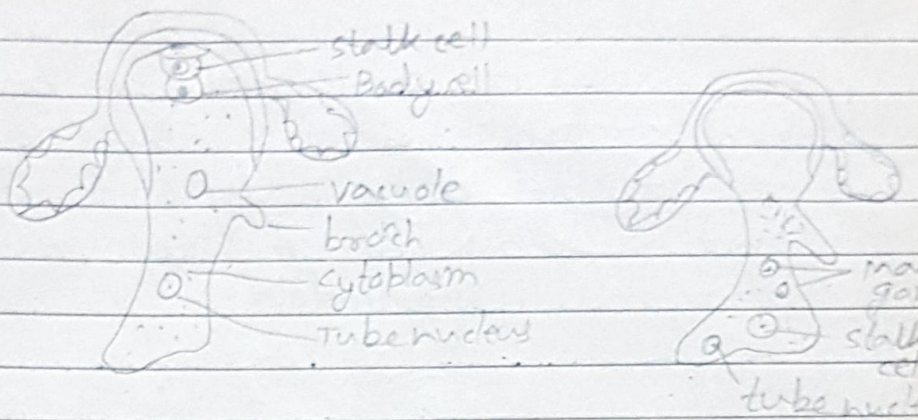 stalk cell
Body cell
vacuole
branch
cytoplasm
Tube nucleus
stal
tube nuc